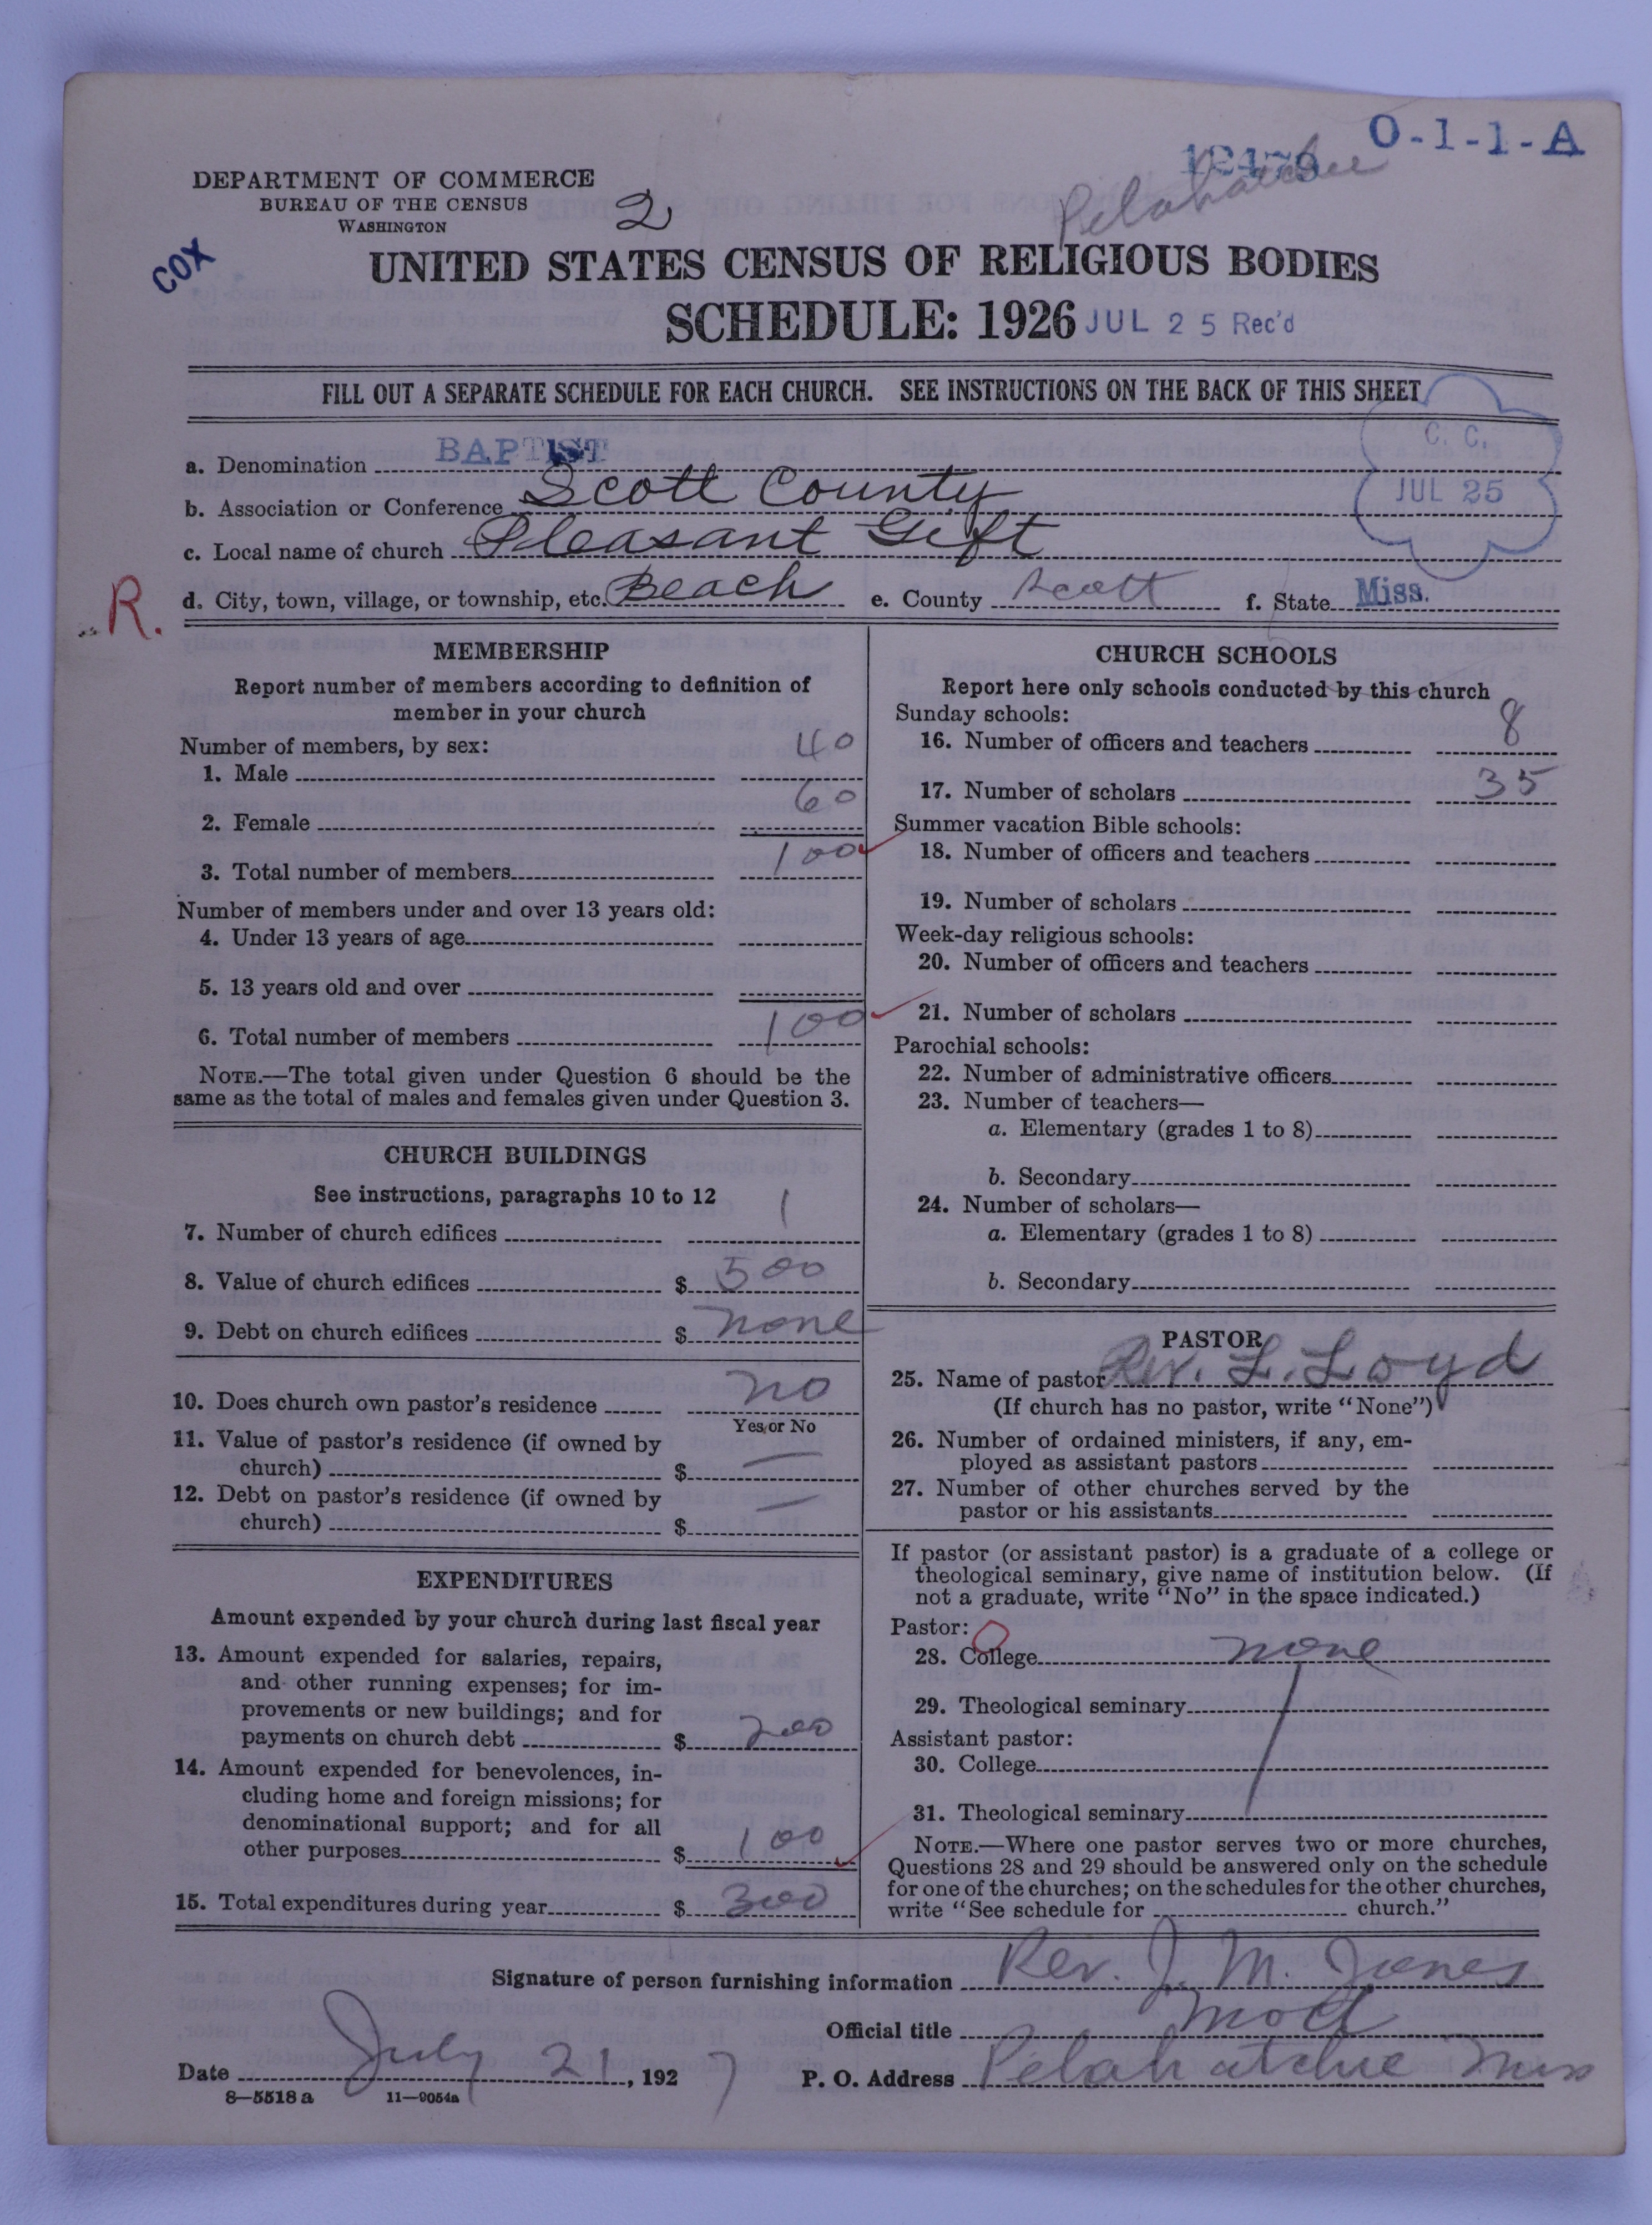 O-1-1-A
12479
Pelahatchie
DEPARTMENT OF COMMERCE
BUREAU OF THE CENSUS
WASHINGTON
2
COX
UNITED STATES CENSUS OF RELIGIOUS BODIES
SCHEDULE: 1926 JUL 25 Rec'd
FILL OUT A SEPARATE SCHEDULE FOR EACH CHURCH. SEE INSTRUCTIONS ON THE BACK OF THIS SHEET
C. C.
JUL 25
a. Denomination BAPTIST
b. Association or Conference Scott County
c. Local name of church Pleasant Gift
R.
d. City, town, village, or township, etc. Beach e. County Scott f. State Miss.
MEMBERSHIP
Report number of members according to definition of
member in your church
Number of members, by sex:
1. Male 40
2. Female 60
3. Total number of members 100
Number of members under and over 13 years old:
4. Under 13 years of age
5. 13 years old and over
6. Total number of members 100
NOTE.—The total given under Question 6 should be the
same as the total of males and females given under Question 3.
CHURCH BUILDINGS
See instructions, paragraphs 10 to 12
7. Number of church edifices 1
8. Value of church edifices $ 500
9. Debt on church edifices $ none
10. Does church own pastor's residence no
Yes or No
11. Value of pastor's residence (if owned by
church) $ —
12. Debt on pastor's residence (if owned by
church) $ —
EXPENDITURES
Amount expended by your church during last fiscal year
13. Amount expended for salaries, repairs,
and other running expenses; for im-
provements or new buildings; and for
payments on church debt $ 200
14. Amount expended for benevolences, in-
cluding home and foreign missions; for
denominational support; and for all
other purposes $ 100
15. Total expenditures during year $ 300
CHURCH SCHOOLS
Report here only schools conducted by this church
Sunday schools:
16. Number of officers and teachers 8
17. Number of scholars 35
Summer vacation Bible schools:
18. Number of officers and teachers
19. Number of scholars
Week-day religious schools:
20. Number of officers and teachers
21. Number of scholars
Parochial schools:
22. Number of administrative officers
23. Number of teachers—
a. Elementary (grades 1 to 8)
b. Secondary
24. Number of scholars—
a. Elementary (grades 1 to 8)
b. Secondary
PASTOR
25. Name of pastor Rev. L. Loyd
(If church has no pastor, write "None")
26. Number of ordained ministers, if any, em-
ployed as assistant pastors
27. Number of other churches served by the
pastor or his assistants
If pastor (or assistant pastor) is a graduate of a college or
theological seminary, give name of institution below. (If
not a graduate, write "No" in the space indicated.)
Pastor:
28. College none
29. Theological seminary
Assistant pastor:
30. College
31. Theological seminary
NOTE.—Where one pastor serves two or more churches,
Questions 28 and 29 should be answered only on the schedule
for one of the churches; on the schedules for the other churches,
write "See schedule for church."
Signature of person furnishing information Rev. J. M. Jones
Official title Mod
Date July 21, 1927 P. O. Address Pelahatchie Miss
8—5518 a 11—9054a